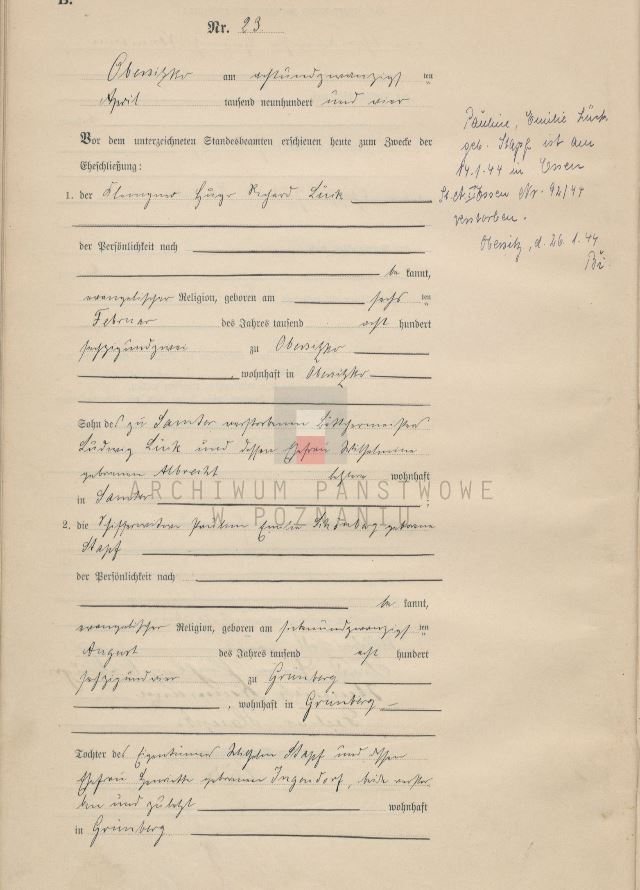 B.
Nr. 23
Obersitzko am achtundzwanzigsten
April tausend neunhundert und vier
Vor dem unterzeichneten Standesbeamten erschienen heute zum Zwecke der
Eheschließung:
1. der Klempner Hugo Richard Lück
der Persönlichkeit nach
be kannt,
evangelischer Religion, geboren am sechsten
Februar des Jahres tausend acht hundert
sechzigundzwei zu Obersitzko
, wohnhaft in Obersitzko
Sohn des zu Samter verstorbenen Böttchermeisters
Ludwig Lück und dessen Ehefrau Wilhelmine
geborenen Albrecht letztere wohnhaft
in Samter
2. die Pauline Emilie geborene
Stapf
der Persönlichkeit nach
be kannt,
evangelischer Religion, geboren am siebenundzwanzigsten
August des Jahres tausend acht hundert
sechzigundvier zu Grünberg
, wohnhaft in Grünberg
Tochter des Eigentümers Wilhelm Stapf und dessen
Ehefrau Henriette geborenen Ingendorf, beide verstor-
ben und zuletzt wohnhaft
in Grünberg
Pauline, Emilie Lück
geb. Stapf ist am
14.1.44 in Essen
St.A. Essen Nr. 92/44
verstorben.
Obersitz, d. 26.1.44
ARCHIWUM PAŃSTWOWE
W POZNANIU